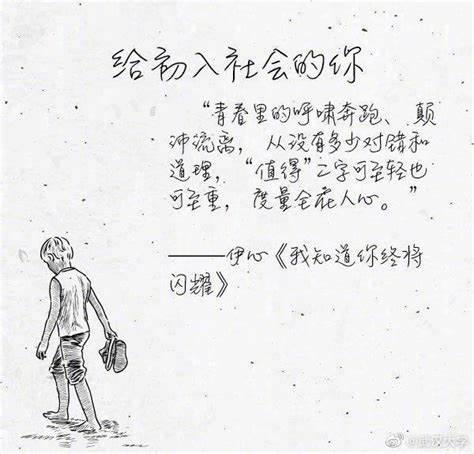 给初入社会的你
“青春里的呼啸奔跑、颠
沛流离，从没有多少对错和
道理，“值得”二字可至轻也
可至重，度量全在人心。”
——伊心《我知道你终将
闪耀》
@武汉大学